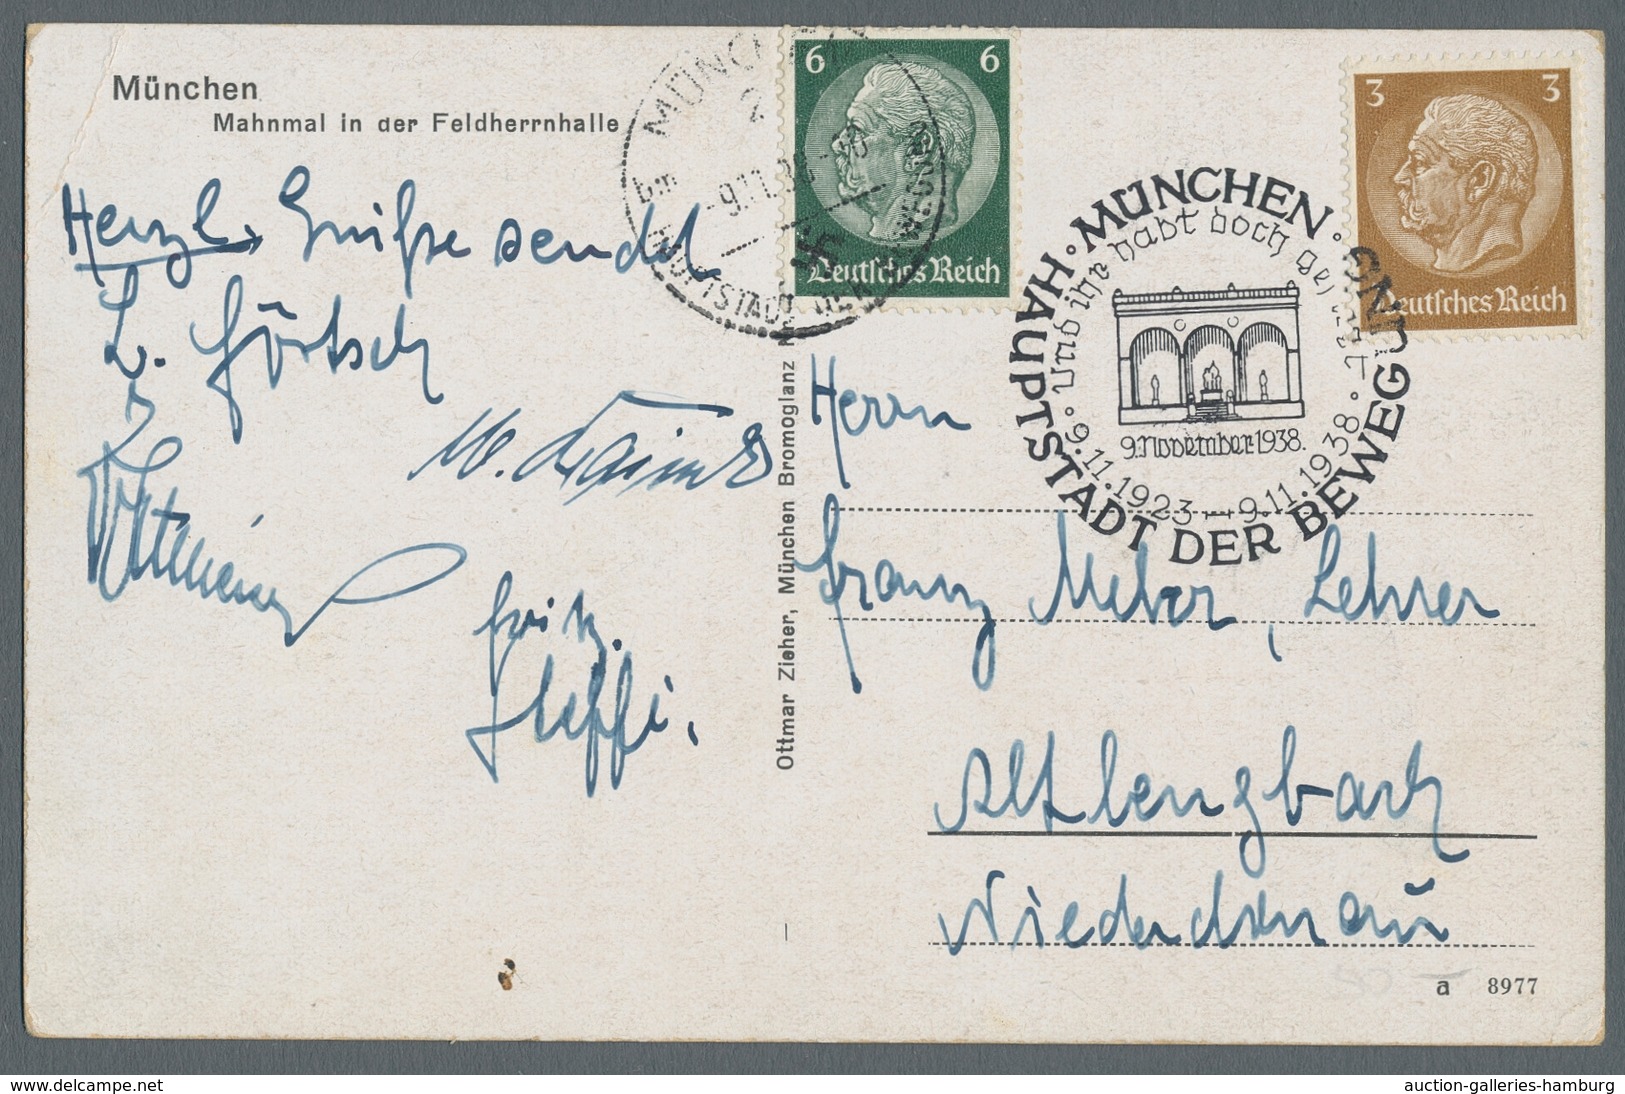 München
Mahnmal in der Feldherrnhalle
Herzl. Grüße sendet
L. Förtsch
Fritz.
Steffi.
Ottmar Zieher, München Bromoglanz
MÜNCHEN
9.11.38
HAUPTSTADT DER BEWEGUNG
6 6
Deutsches Reich
3 3
Deutsches Reich
MÜNCHEN · HAUPTSTADT DER BEWEGUNG ·
Und ihr habt doch gesiegt
9.November 1938.
9.11.1923 – 9.11.1938
Herrn
Franz Weber, Lehrer
Altlengbach
Niederdonau
a 8977
www.delcampe.net
auction-galleries-hamburg